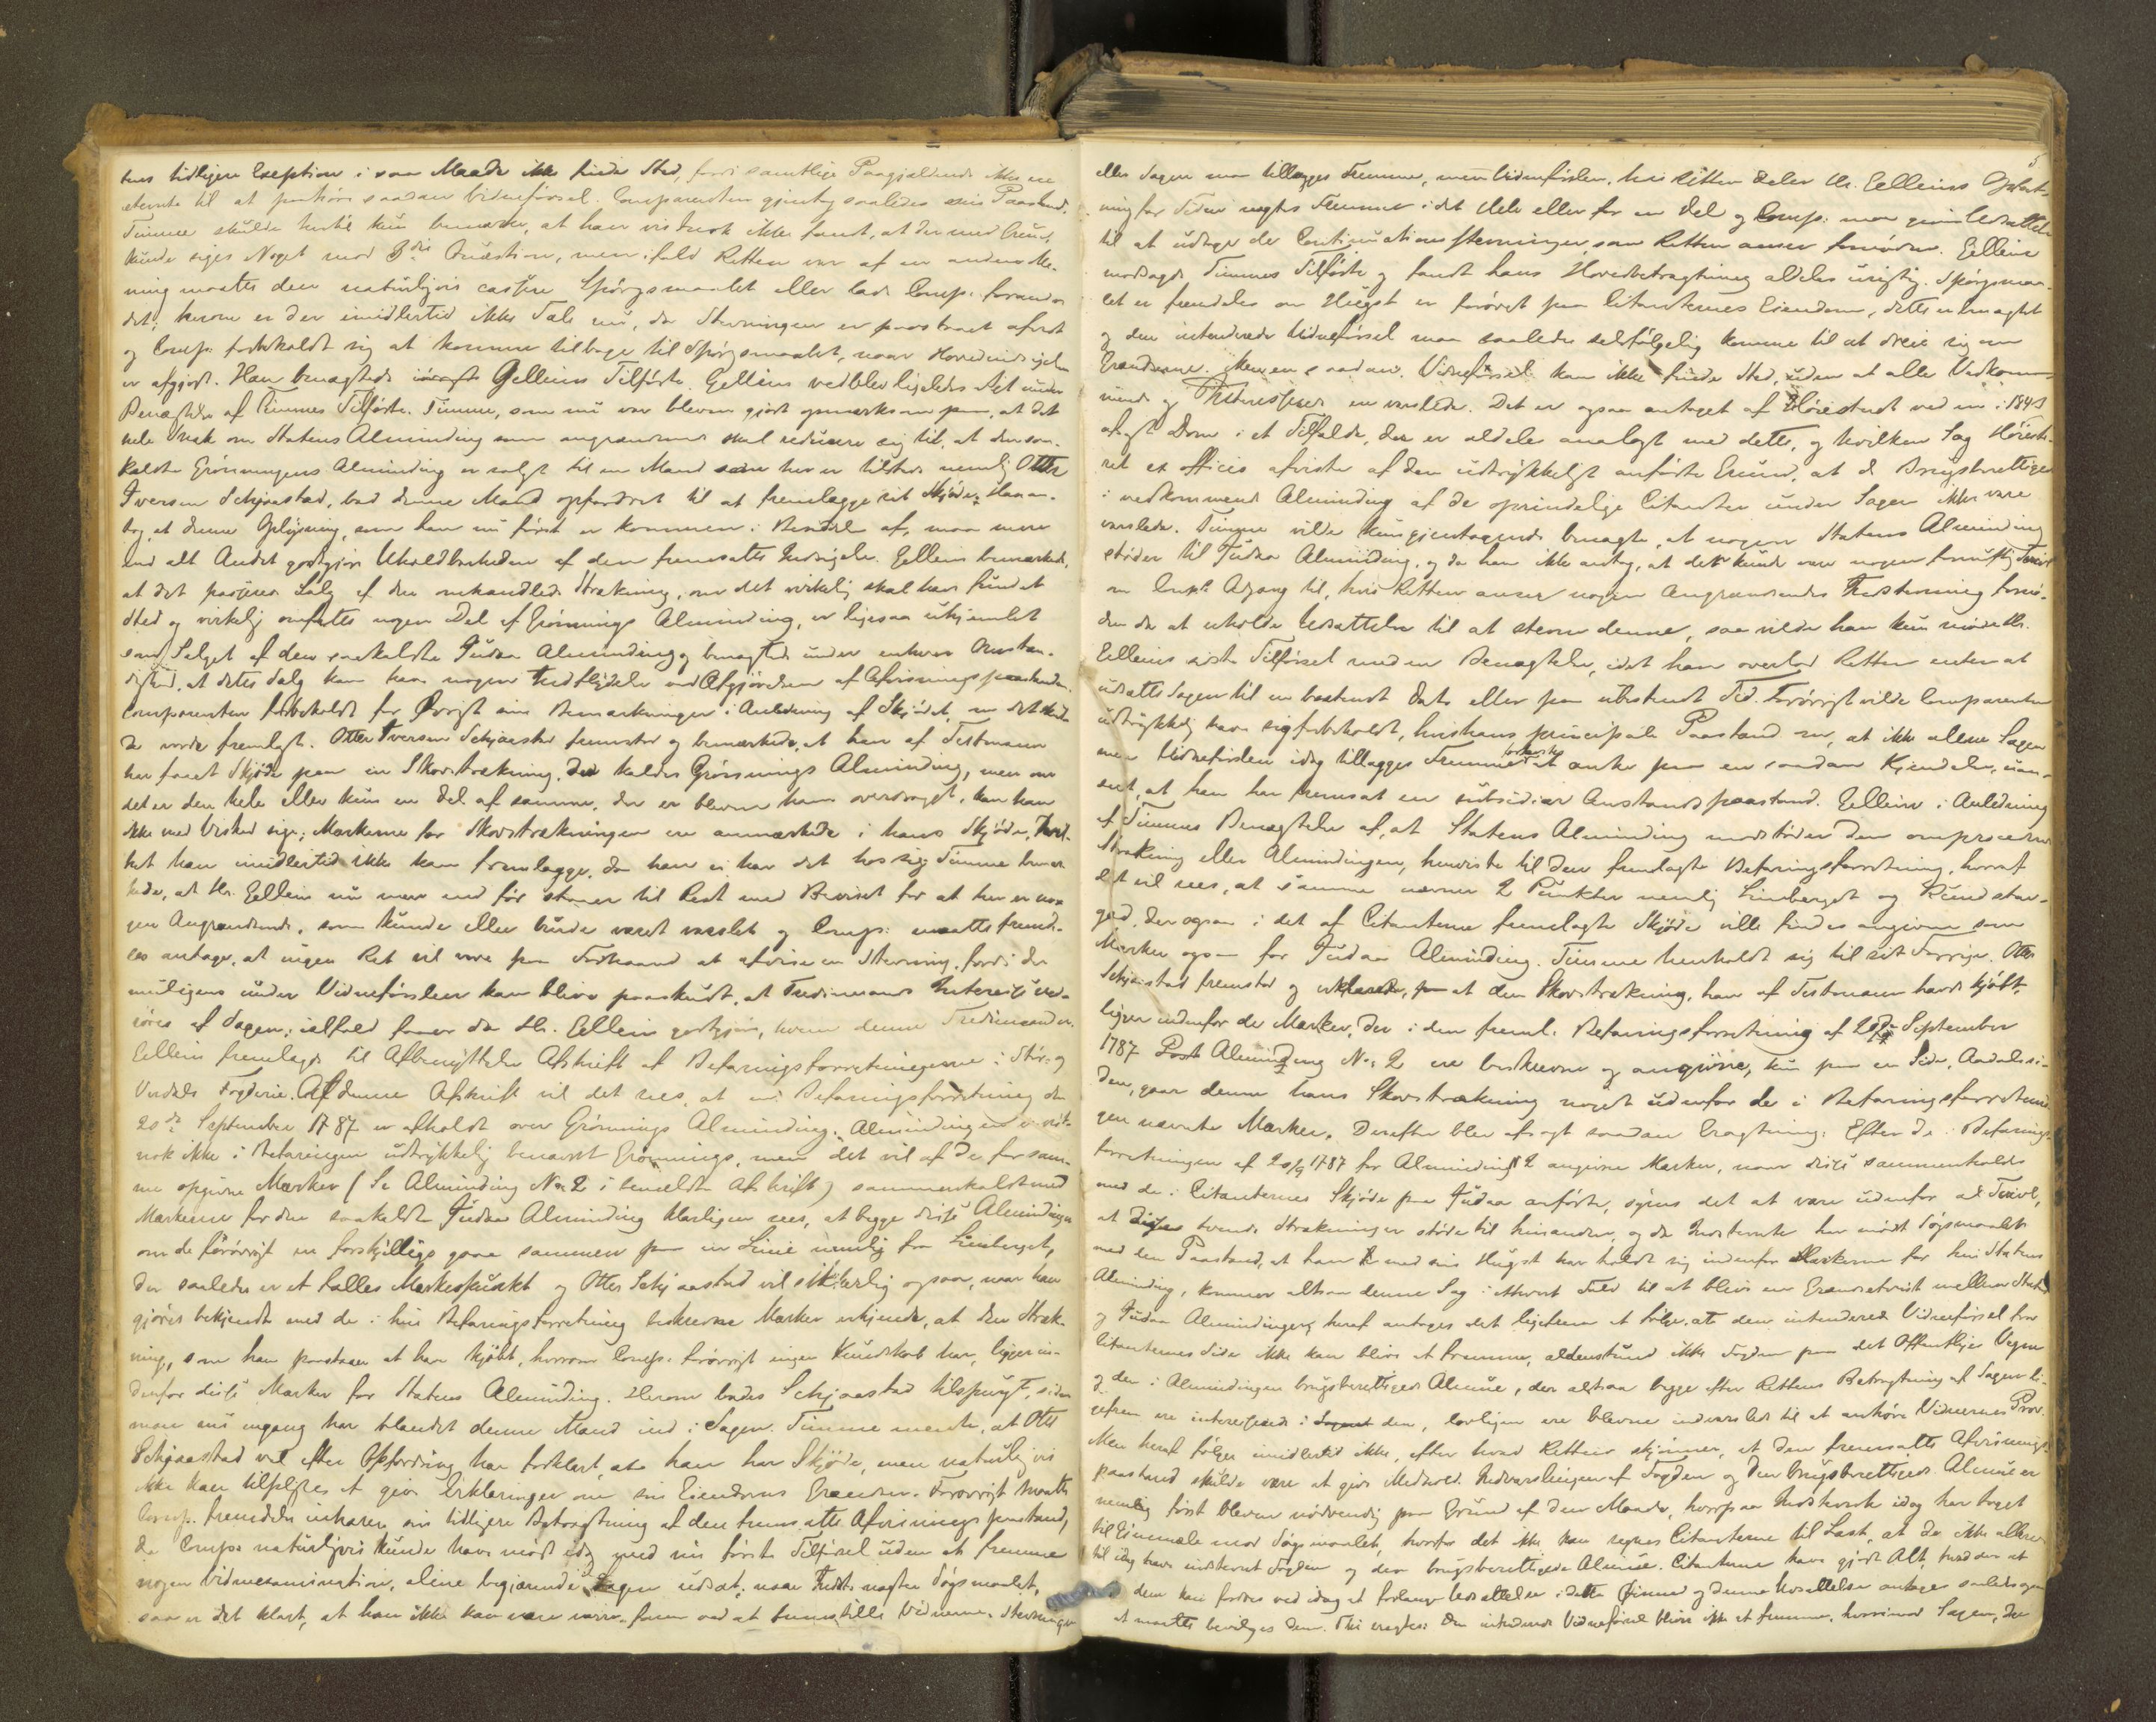 tens tidligere Exeption i saa Maade ikke finde Sted, fordi samtlige Paagjældende ikke ere
stevnte til at paahøre saadan Vidneførsel. Comparenten gjentog saaledes sin Paastand.
Timme skulde hertil kun bemærke, at han vistnok ikke fandt, at der med Grund
kunde siges Noget mod 3die Quæstion, men ifald Retten var af en anden Me-
ning maatte den naturligvis cassere Spørgsmaalet eller lade Comp. forandre
det; herom er der imidlertid ikke Tale nu, da Stevningen er paastaaet afvist
og Comp. forbeholdt sig at komme tilbage til Spørgsmaalet, naar Hovedindsigelsen
er afgjort. Han benægtede iøvrigt Gelleins Tilførte. Gellein vedblev ligeledes sit under
Benægtelse af Timmes Tilførte. Timme, som nu var bleven gjort opmærksom paa, at det
hele Snak om Statens Alminding som angrændsende skal reducere sig til, at den saa-
kaldte Grønningens Alminding er solgt til en Mand som her er tilstede nemlig Otter
Iversen Schjaastad, bad denne Mand opfordret til at fremlægge sit Skjøde. Han an-
tog, at denne Oplysning, som han nu først er kommen i Besiddelse af, maa mere
end alt Andet godtgjøre Uholdbarheden af den fremsatte Indsigelse. Gellein bemærkede,
at det passerede Salg af den omhandlede Strækning, om det virkelig skal have fundet
Sted og virkelig omfatte nogen Del af Grønnings Alminding, er ligesaa uhjemlet
som Salget af den saakaldte Judaa Alminding og benægtede under enhver Omstæn-
dighed, at dette Salg kan have nogen Indflydelse ved Afgjørelsen af Afvisningspaastanden.
Comparenten forbeholdt for Øvrigt sine Bemærkninger i Anledning af Skjødet, om det skul-
de vorde fremlagt. Otter Iversen Schjaastad fremstod og bemærkede, at han af Testmann
har faaet Skjøde paa en Skovstrækning, der kaldes Grønnings Alminding, men om
det er den hele eller kun en Del af samme, der er bleven ham overdraget, kan han
ikke med Vished sige; Mærkerne for Skovstrækningen ere anmærkede i hans Skjøde, hvil-
ket han imidlertid ikke kan fremlægge, da han ei har det hos sig. Timme bemær-
kede, at Hr. Gellein nu mere end før staaer til Rest med Beviset for at her er no-
gen Angrændsende, som kunde eller burde været varslet og Comp. maatte fremde-
les antage, at ingen Ret vil være paa Forhaand at afvise en Stevning, fordi der
muligens under Vidneførslen kan blive paaskudt, at Tredimands Interesse be-
røres af Sagen; ialfald faaer da Hr. Gellein godtgjøre, hvem denne Tredimand er.
Gellein fremlagde til Afbenyttelse Afskrift af Befaringsforretningerne i Stør- og
Verdals Fogderie. Af denne Afskrift vil det sees, at en Befaringsforretning den
20de September 1787 er afholdt over Grønnings Alminding. Almindingen er vist-
nok ikke i Befaringen udtrykkelig benævnt Grønnings, men det vil af de for sam-
me opgivne Mærker (Se Alminding No 2 i bemeldte Afskrift) sammenholdt med
Mærkerne for den saakaldte Judaa Alminding klarligen sees, at begge disse Almindinger
om de forøvrigt ere forskjellige gaae sammen paa en Linie nemlig fra Limberget,
der saaledes er et fælles Mærkespunkt og Otter Schjaastad vil sikkerlig ogsaa, naar han
gjøres bekjendt med de i hiin Befaringsforretning beskrevne Mærker erkjende, at den Stræk-
ning, som han paastaaer at have kjøbt, hvorom Comp. forøvrigt ingen Kundskab har, ligger in-
denfor disse Mærker for Statens Alminding. Herom bades Schjaastad tilspurgt, siden
man nu engang har blandet denne Mand ind i Sagen. Timme mente, at Otter
Schjaastad vel efter Opfordring har forklaret, at han har Skjøde, men naturligvis
ikke kan tilpligtes at give Erklæringer om sin Eiendoms Grændser. Forøvrigt maatte
Comp. fremdeles inhærere sin tidligere Betragtning af den fremsatte Afvisningspaastand,
da Comp. naturligvis kunde have mødt idag med sin første Tilførsel uden at fremme
nogen Vidneexamination, alene begjærende Sagen udsat; naar Indst. negter Søgsmaalet,
saa er det klart, at han ikke kan være værre faren ved at fremstille Vidnerne. Stevningen
5
eller Sagen maa tillægges Fremme, men Vidneførslen, hvis Retten deler Hr. Gelleins Opfat-
ning for Tiden negtes Fremme i det Hele eller for en Del og Comp. maa gives Udsættelse
til at udtage de Continuationsstevninger, som Retten anser fornødne. Gellein
modsagde Timmes Tilførte og fandt hans Hovedbetragtning aldeles urigtig. Spørgsmaa-
let er fremdeles om Hugst er forøvet paa Citanternes Eiendom, dette er benægtet
og den intenderede Vidneførsel maa saaledes selvfølgelig komme til at dreie sig om
Grændserne. Men en saadan Vidneførsel kan ikke finde Sted, uden at alle Vedkom-
mende og Interesserede ere varslede. Det er ogsaa antaget af Høiesteret ved en i 1843
afsagt Dom i et Tilfælde, der er aldeles analogt med dette, og hvilken Sag Høieste-
ret ex officio afviste af den udtrykkeligt anførte Grund, at de Brugsberettigede
i vedkommende Alminding af de oprindelige Citanter under Sagen ikke vare
varslede. Timme vilde kun gjentagende benægte, at nogen Statens Alminding
støder til Judaa Alminding, og da han ikke antog, at det kunde være nogen fornuftig Tvivl
om Comp. Adgang til, hvis Retten anser nogen Angrændsendes Indstevning fornø-
den da at erholde Udsættelse til at stevne denne, saa vilde han kun møde Hr.
Gelleins sidste Tilførsel med en Benægtelse, idet han overlod Retten enten at
udsætte Sagen til en bestemt Dato eller paa ubestemt Tid. Forøvrigt vilde Comparenten
udtrykkelig have sig forbeholdt, hvis hans principale Paastand om, at ikke alene Sagen
men Vidneførslen idag tillægges Fremme forkastes at anke paa en saadan Kjendelse, uan-
seet, at han har fremsat en subsidiær Anstandspaastand. Gellein i Anledning
af Timmes Benægtelse af, at Statens Alminding modstøder den omprocederede
Strækning eller Almindingen, henviste til den fremlagte Befaringsforretning, hvoraf
det vil sees, at samme nævner 2 Punkter nemlig Limberget og
der ogsaa i det af Citanterne fremlagte Skjøde ville findes angivne som
Mærker ogsaa for Judaa Alminding. Timme henholdt sig til sit Forrige. Otter
Schjaastad fremstod og erklærede, at den Skovstrækning, han af Testmann havde kjøbt,
ligger indenfor de Mærker, der i den freml. Befaringsforretning af 20de September
1787 Post Alminding No 2 ere beskrevne og angivne, kun paa en Side,
den, gaar denne hans Skovstrækning noget udenfor de i Befaringsforretnin-
gen nævnte Mærker. Derefter blev afsagt saadan Eragtning: Efter de i Befarings-
forretningen af 20/9 1787 for Alminding 2 angivne Mærker, naar disse sammenholdes
med de i Citanternes Skjøde paa Judaa anførte, synes det at være udenfor al Tvivl,
at disse tvende Strækninger støde til hinanden, og da Indstevnte har mødt Søgsmaalet
med den Paastand, at han med sin Hugst har holdt sig indenfor Mærkerne for hin Statens
Alminding, kommer altsaa denne Sag i ethvert Fald til at blive en Grændsetvist mellem Statens
og Judaa Almindinger; heraf antages det ligefrem at følge, at den intenderede Vidneførsel fra
Citanternes Side ikke kan blive at fremme, aldenstund ikke Fogden paa det Offentliges Vegne
og den i Almindingen brugsberettigede Almue, der altsaa begge efter Rettens Betragtning af Sagen li-
gefrem ere interesserede i den, lovligen ere blevne indvarslede til at anhøre Vidnernes Prov.
Men heraf følger imidlertid ikke, efter hvad Retten skjønner, at den fremsatte Afvisnings-
paastand skulde være at give Medhold. Indvarslingen af Fogden og den brugsberettigede Almue er
nemlig først bleven nødvendig paa Grund af den Maade, hvorpaa Indstevnte idag har taget
til Gjenmæle mod Søgsmaalet, hvorfor det ikke kan regnes Citanterne til Last, at de ikke allerede
til idag have indstevnet Fogden og den brugsberettigede Almue. Citanterne have gjort Alt, hvad der af
dem kan fordres ved idag at forlange Udsættelse i dette Øiemed og denne Udsættelse antages saaledes ogsaa
at maatte bevilges dem. Thi eragtes: Den intenderede Vidneførsel bliver ikke at fremme, hvorimod Sagen, der